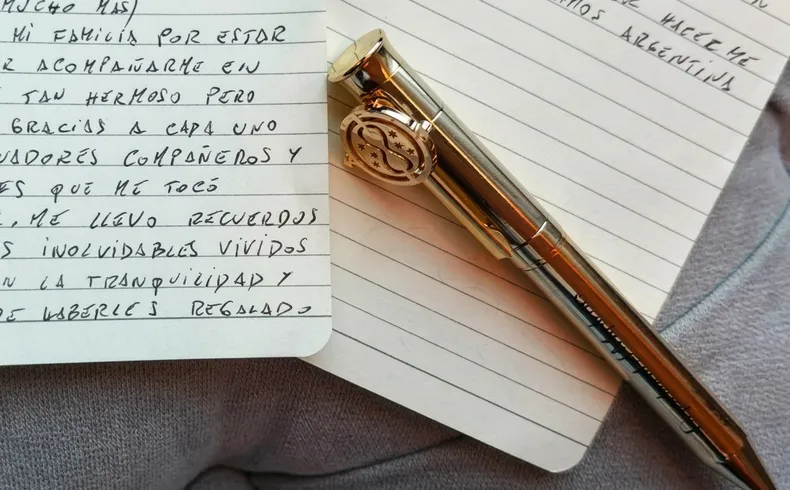 MUCHO MAS)
MI FAMILIA POR ESTAR
R ACOMPAÑARME EN
TAN HERMOSO PERO
GRACIAS A CADA UNO
UADORES COMPAÑEROS Y
ES QUE ME TOCÓ
, ME LLEVO RECUERDOS
S INOLVIDABLES VIVIDOS
N LA TRANQUILIDAD Y
DE HABERLES REGALADO
HACERME
MOS ARGENTINA